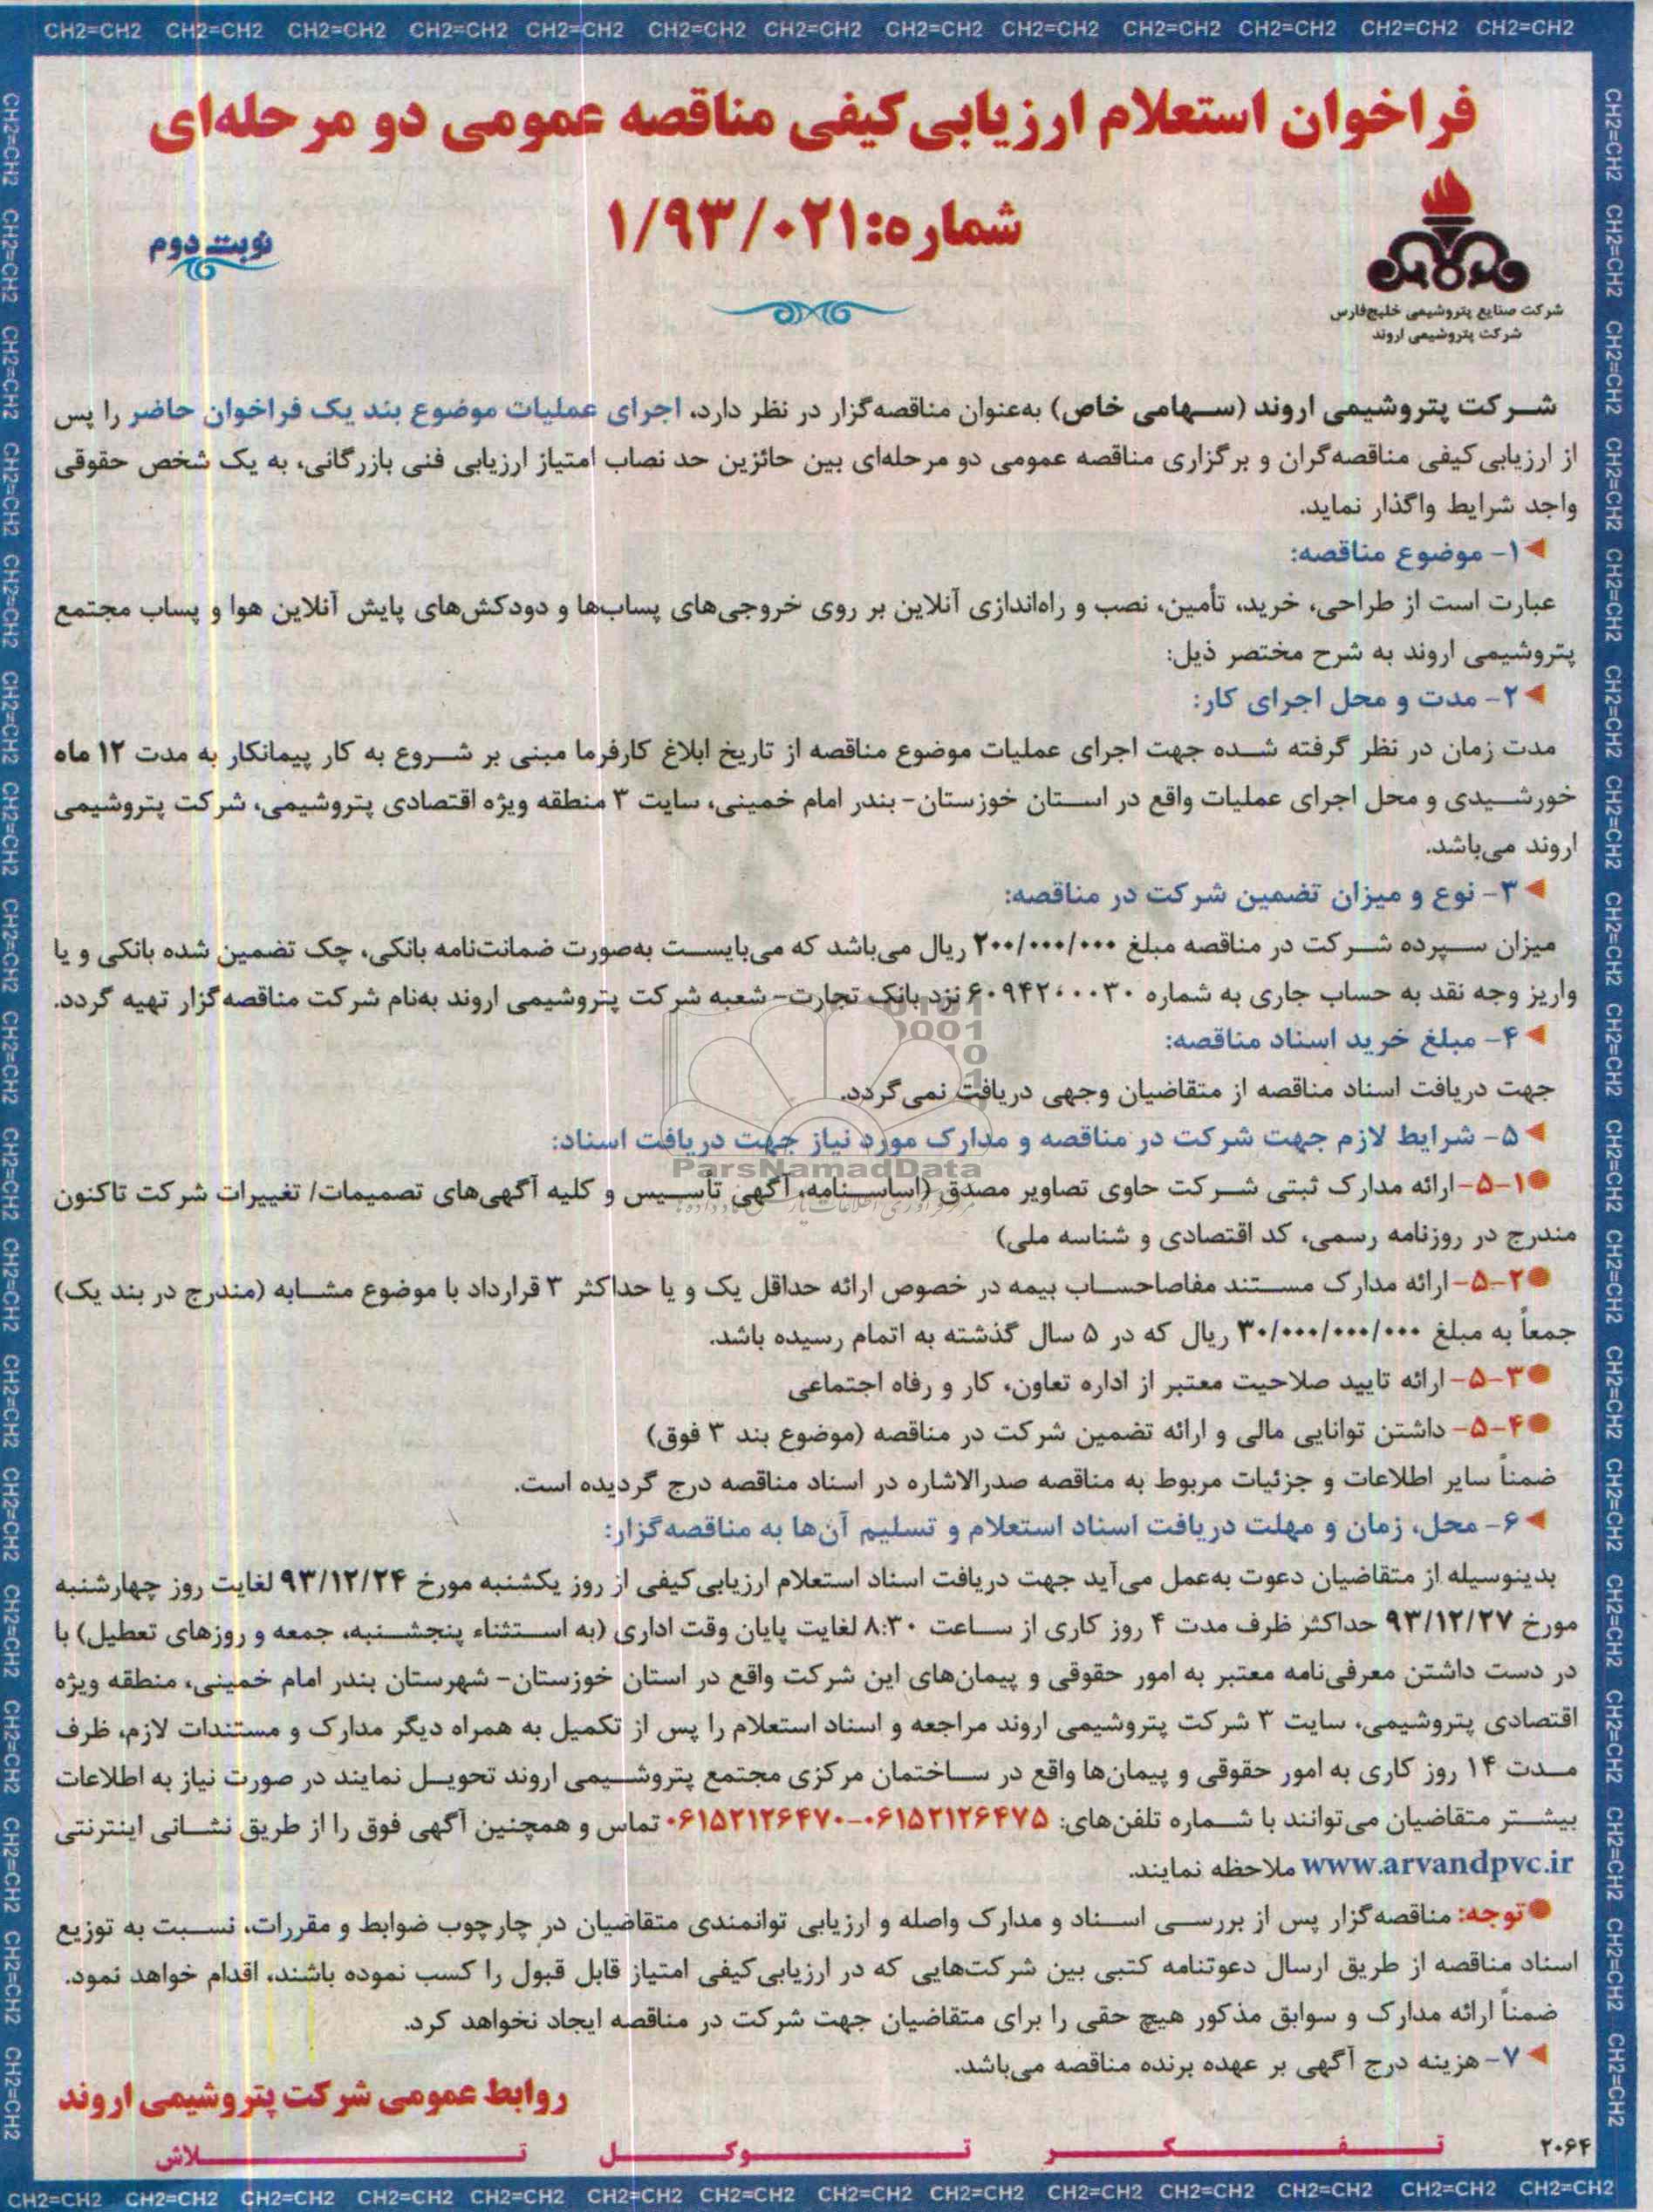 CH2=CH2 CH2=CH2 CH2=CH2 CH2=CH2 CH2=CH2 CH2=CH2 CH2=CH2 CH2=CH2 CH2=CH2 CH2=CH2 CH2=CH2 CH2=CH2 CH2=CH2
فراخوان استعلام ارزیابی کیفی مناقصه عمومی دو مرحله‌ای
شماره: ۱/۹۳/۰۲۱
نوبت دوم
شرکت صنایع پتروشیمی خلیج‌فارس
شرکت پتروشیمی اروند
شرکت پتروشیمی اروند (سهامی خاص) به‌عنوان مناقصه‌گزار در نظر دارد، اجرای عملیات موضوع بند یک فراخوان حاضر را پس
از ارزیابی کیفی مناقصه‌گران و برگزاری مناقصه عمومی دو مرحله‌ای بین حائزین حد نصاب امتیاز ارزیابی فنی بازرگانی، به یک شخص حقوقی
واجد شرایط واگذار نماید.
۱- موضوع مناقصه:
عبارت است از طراحی، خرید، تأمین، نصب و راه‌اندازی آنلاین بر روی خروجی‌های پساب‌ها و دودکش‌های پایش آنلاین هوا و پساب مجتمع
پتروشیمی اروند به شرح مختصر ذیل:
۲- مدت و محل اجرای کار:
مدت زمان در نظر گرفته شده جهت اجرای عملیات موضوع مناقصه از تاریخ ابلاغ کارفرما مبنی بر شروع به کار پیمانکار به مدت ۱۲ ماه
خورشیدی و محل اجرای عملیات واقع در استان خوزستان- بندر امام خمینی، سایت ۳ منطقه ویژه اقتصادی پتروشیمی، شرکت پتروشیمی
اروند می‌باشد.
۳- نوع و میزان تضمین شرکت در مناقصه:
میزان سپرده شرکت در مناقصه مبلغ ۲۰۰/۰۰۰/۰۰۰ ریال می‌باشد که می‌بایست به‌صورت ضمانت‌نامه بانکی، چک تضمین شده بانکی و یا
واریز وجه نقد به حساب جاری به شماره ۶۰۹۴۲۰۰۰۳۰ نزد بانک تجارت- شعبه شرکت پتروشیمی اروند به‌نام شرکت مناقصه‌گزار تهیه گردد.
۴- مبلغ خرید اسناد مناقصه:
جهت دریافت اسناد مناقصه از متقاضیان وجهی دریافت نمی‌گردد.
۵- شرایط لازم جهت شرکت در مناقصه و مدارک مورد نیاز جهت دریافت اسناد:
ParsNamadData
۵-۱-ارائه مدارک ثبتی شرکت حاوی تصاویر مصدق (اساسنامه، آگهی تأسیس و کلیه آگهی‌های تصمیمات/ تغییرات شرکت تاکنون
مندرج در روزنامه رسمی، کد اقتصادی و شناسه ملی)
۵-۲-ارائه مدارک مستند مفاصاحساب بیمه در خصوص ارائه حداقل یک و یا حداکثر ۳ قرارداد با موضوع مشابه (مندرج در بند یک)
جمعاً به مبلغ ۳۰/۰۰۰/۰۰۰/۰۰۰ ریال که در ۵ سال گذشته به اتمام رسیده باشد.
۵-۳-ارائه تایید صلاحیت معتبر از اداره تعاون، کار و رفاه اجتماعی
۵-۴- داشتن توانایی مالی و ارائه تضمین شرکت در مناقصه (موضوع بند ۳ فوق)
ضمناً سایر اطلاعات و جزئیات مربوط به مناقصه صدرالاشاره در اسناد مناقصه درج گردیده است.
۶- محل، زمان و مهلت دریافت اسناد استعلام و تسلیم آن‌ها به مناقصه‌گزار:
بدینوسیله از متقاضیان دعوت به‌عمل می‌آید جهت دریافت اسناد استعلام ارزیابی کیفی از روز یکشنبه مورخ ۹۳/۱۲/۲۴ لغایت روز چهارشنبه
مورخ ۹۳/۱۲/۲۷ حداکثر ظرف مدت ۴ روز کاری از ساعت ۸:۳۰ لغایت پایان وقت اداری (به استثناء پنجشنبه، جمعه و روزهای تعطیل) با
در دست داشتن معرفی‌نامه معتبر به امور حقوقی و پیمان‌های این شرکت واقع در استان خوزستان- شهرستان بندر امام خمینی، منطقه ویژه
اقتصادی پتروشیمی، سایت ۳ شرکت پتروشیمی اروند مراجعه و اسناد استعلام را پس از تکمیل به همراه دیگر مدارک و مستندات لازم، ظرف
مدت ۱۴ روز کاری به امور حقوقی و پیمان‌ها واقع در ساختمان مرکزی مجتمع پتروشیمی اروند تحویل نمایند در صورت نیاز به اطلاعات
بیشتر متقاضیان می‌توانند با شماره تلفن‌های: ۰۶۱۵۲۱۲۶۴۷۵-۰۶۱۵۲۱۲۶۴۷۰ تماس و همچنین آگهی فوق را از طریق نشانی اینترنتی
www.arvandpvc.ir ملاحظه نمایند.
توجه: مناقصه‌گزار پس از بررسی اسناد و مدارک واصله و ارزیابی توانمندی متقاضیان در چارچوب ضوابط و مقررات، نسبت به توزیع
اسناد مناقصه از طریق ارسال دعوتنامه کتبی بین شرکت‌هایی که در ارزیابی کیفی امتیاز قابل قبول را کسب نموده باشند، اقدام خواهد نمود.
ضمناً ارائه مدارک و سوابق مذکور هیچ حقی را برای متقاضیان جهت شرکت در مناقصه ایجاد نخواهد کرد.
۷- هزینه درج آگهی بر عهده برنده مناقصه می‌باشد.
روابط عمومی شرکت پتروشیمی اروند
تفکر توکل تلاش
۲۰۶۴
CH2=CH2 CH2=CH2 CH2=CH2 CH2=CH2 CH2=CH2 CH2=CH2 CH2=CH2 CH2=CH2 CH2=CH2 CH2=CH2 CH2=CH2 CH2=CH2 CH2=CH2 CH2=CH2